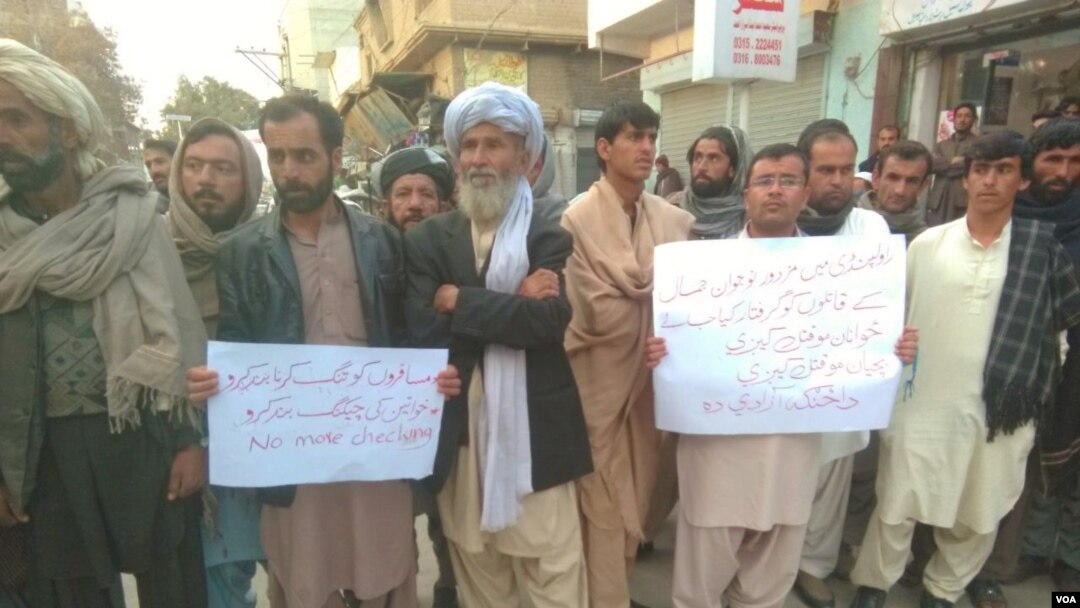 0315. 2224451
0316. 8003476
مسافروں کو تنگ کرنا بند کرو
خواتین کی چیکنگ بند کرو
No more checking
راولپنڈی میں مزدور نوجوان جمال
کے قاتلوں کو گرفتار کیا جائے
ځوانان مو قتل کیږي
بچیان مو قتل کیږي
دا څنګه آزادي ده
VOA